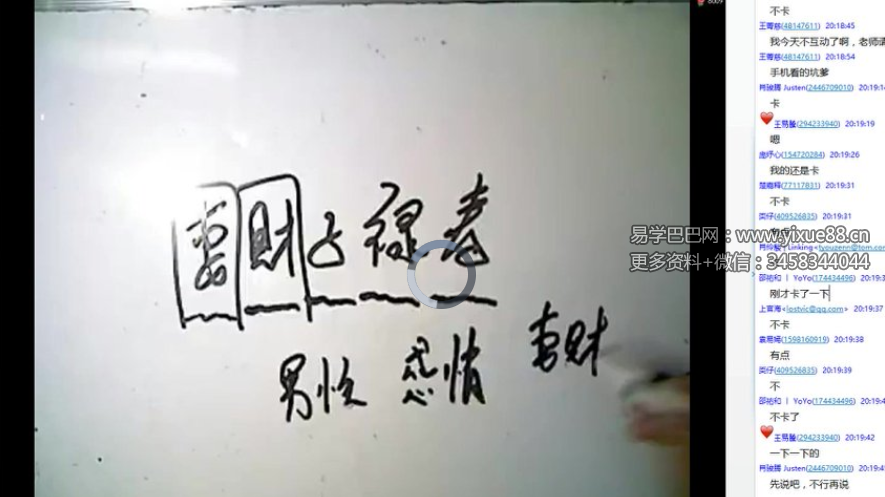 妻财子禄寿
男性 感情 妻财
易学巴巴网:www.yixue88.cn
更多资料+微信:3458344044
不卡
(48147611) 20:18:45
我今天不互动了啊,老师请
(48147611) 20:18:54
手机看的坑爹
Justen(2446709010) 20:19:14
卡
王易(294233940) 20:19:19
嗯
(154720284) 20:19:26
我的还是卡
(77117831) 20:19:31
不卡
(409526835) 20:19:31
有点
YoYo(174434496) 20:19:3
刚才卡了一下
上官海<lostvic@qq.com> 20:19:37
不卡
(1598160919) 20:19:38
有点
(409526835) 20:19:39
不
YoYo(174434496) 20:19:4
不卡了
王易(294233940) 20:19:42
一下一下的
Justen(2446709010) 20:19:4
先说吧,不行再说